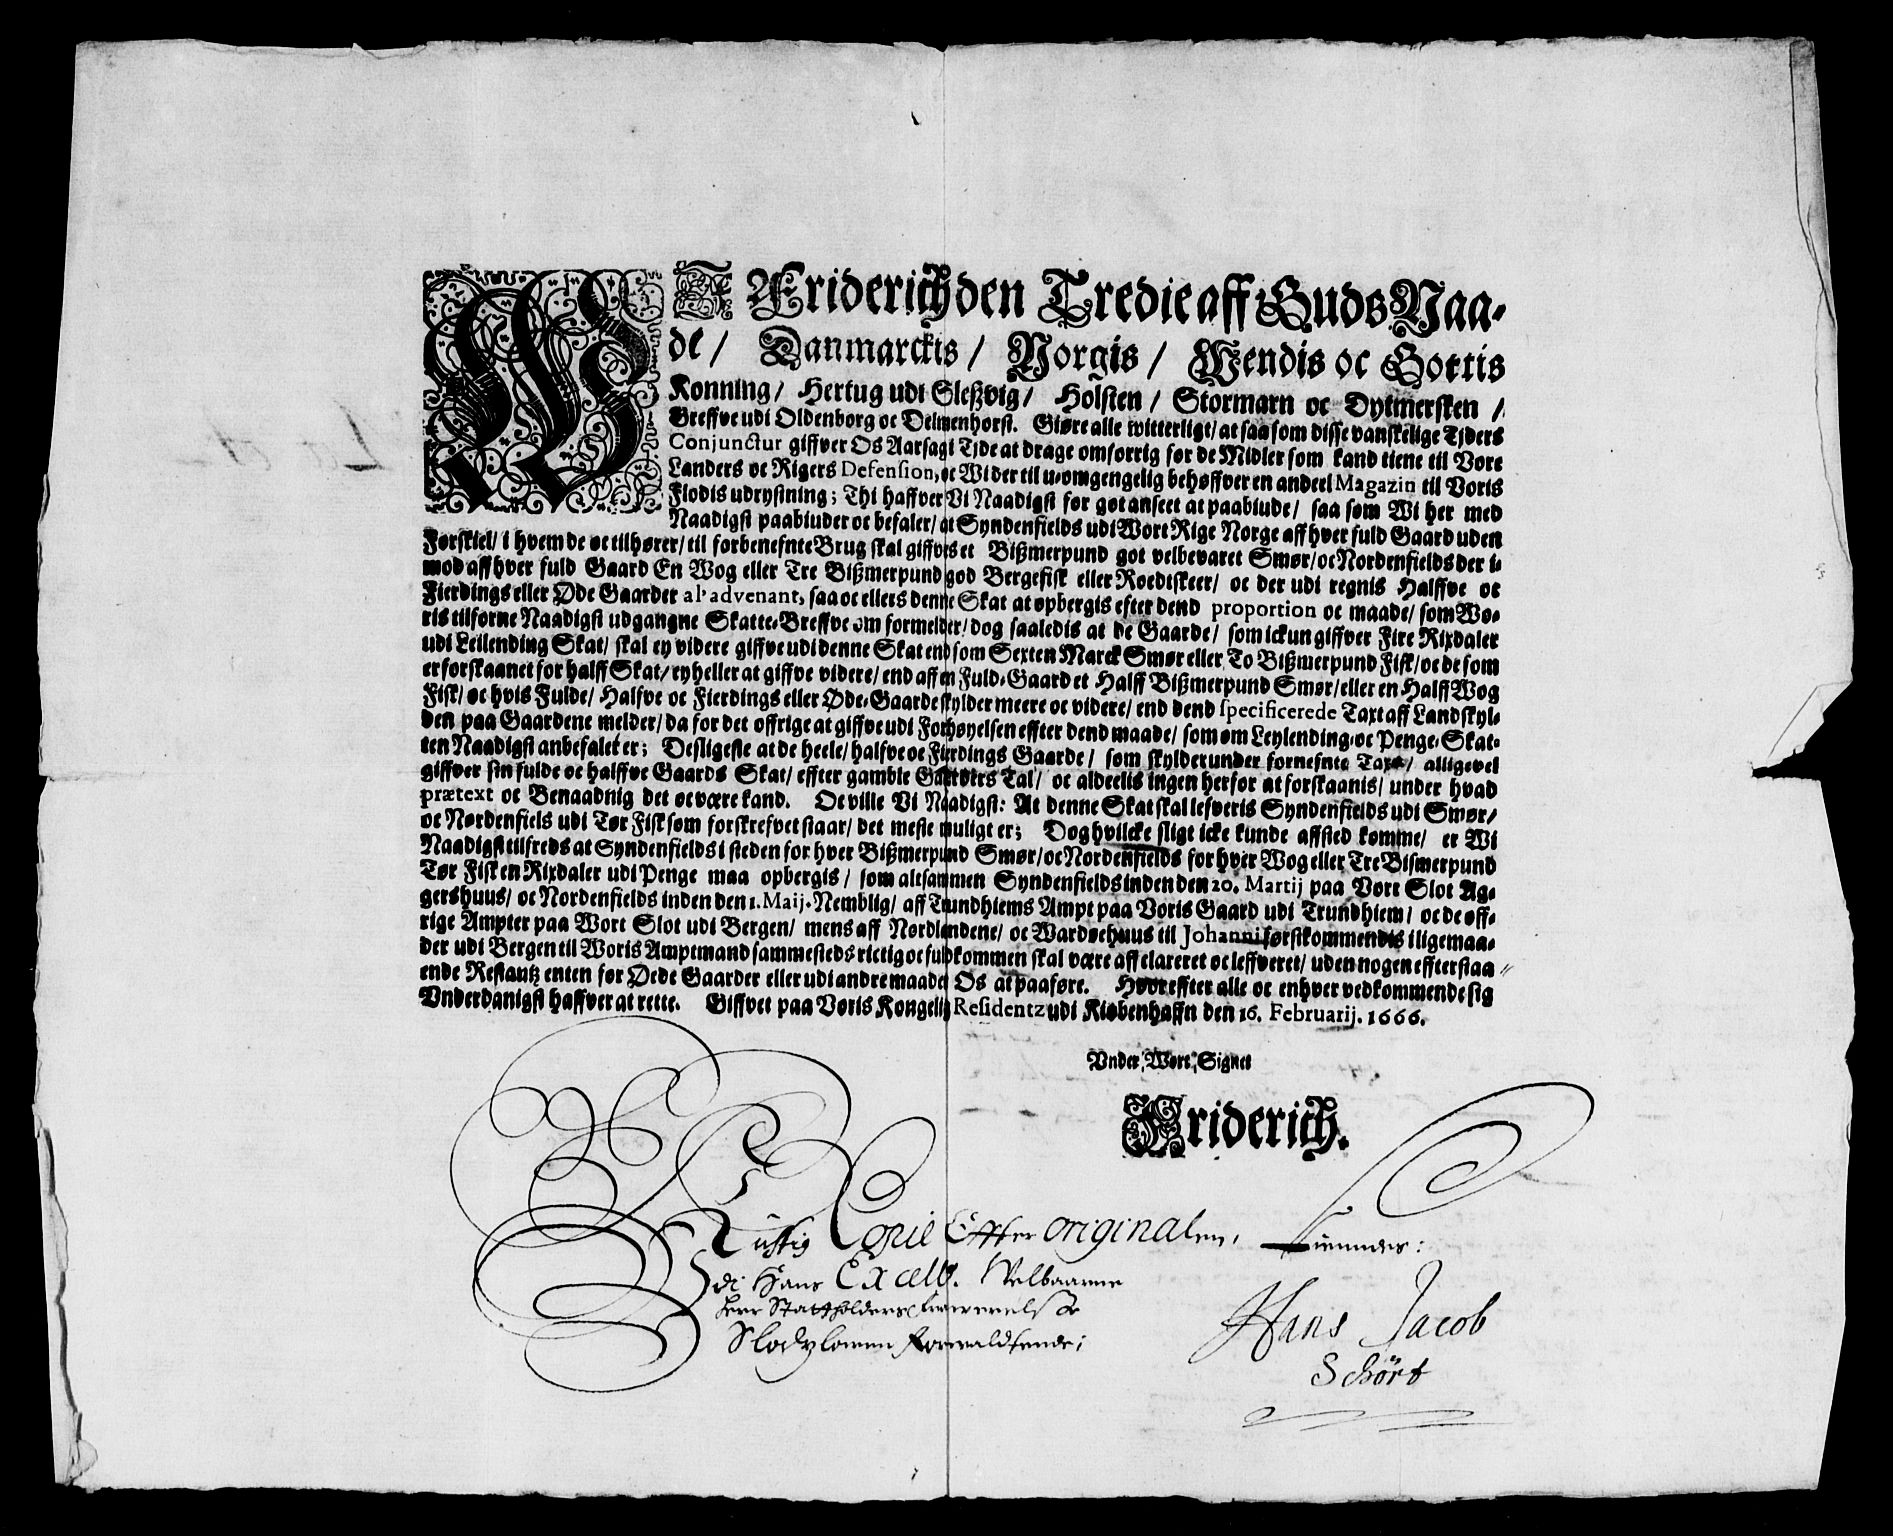 WI Friderich den Tredie aff Guds Naa-
de/ Danmarckis/ Norgis/ Wendis oc Gottis
Konning/ Hertug udi Sleßvig/ Holsten/ Stormarn oc Dytmersken/
Greffve udi Oldenborg oc Delmenhorst. Giøre alle witterligt/ at saa som disse vanskelige Tjders
Conjunctur giffver Os Aarsag i Tjde at drage omsorrig før de Midler som kand tiene til Vore
Landers oc Rigers Defension, oc Wi der til u-omgengelig behøffver en andeel Magazin til Voris
Flodis udrystning; Thi haffver Vi Naadigst før got anseet at paabiude/ saa søm Wi her med
Naadigst paabiuder oc befaler/ at Syndenfields udi Wort Rige Norge aff hver fuld Gaard uden
Førskiel/ i hvem de oc tilhører/ til forbenefnte Brug skal giffvis et Bißmerpund got velbevaret Smør/ oc Nordenfields der i-
mod aff hver fuld Gaard En Wog eller Tre Bißmerpund god Bergefisk eller Roedtskeer/ oc der udi regnis Halffve oc
Fierdings eller Øde Gaarder al' advenant, saa oc ellers denne Skat at opbergis efter dend proportion oc maade/ som Wo-
ris tilforne Naadigst udgangne Skatte-Breffve om formelder/ dog saaledis at de Gaarde/ som ickun giffver Fire Rixdaler
udi Leilending Skat/ skal ey videre giffve udi denne Skat end som Sexten Marck Smør eller To Bißmerpund Fisk/ oc de som
er forskaanet for halff Skat/ ey heller at giffve videre/ end aff en Fuld-Gaard et Halff Bißmerpund Smør/ eller en Halff Wog
Fisk/ oc hvis Fulde/ Halfve oc Fierdings eller Øde-Gaarde skylder meere oc videre/ end dend specificerede Taxt aff Landskyl-
den paa Gaardene melder/ da for det offrige at giffve udi Forhøyelsen effter dend maade/ som om Leylending-oc Penge-Skat-
ten Naadigst anbefalet er; Desligeste at de heele/ halfve oc Fierdings Gaarde/ som skylder under fornefnte Taxt/ alligevel
giffver sin fulde oc halffve Gaards Skat/ effter gamble Gaarders Tal/ oc aldeelis ingen herfor at forskaanis/ under hvad
prætext oc Benaadnig det oc være kand. Oc ville Vi Naadigst: At denne Skat skal lefveris Syndenfields udi Smør/
oc Nørdenfiels udi Tør Fisk søm forskrefvet staar/ det meste muligt er; Dog hvilcke sligt icke kunde affsted komme/ er Wi
Naadigst tilfreds at Syndenfields i steden for hver Bißmerpund Smør/ oc Nordenfields for hver Wog eller Tre Bismerpund
Tør Fisk en Rixdaler udi Penge maa opbergis/ som altsammen Syndenfields inden den 20. Martij paa Vort Slot Ag-
gershuus/ oc Nordenfields inden den 1. Maij. Nemblig/ aff Trundhiems Ampt paa Voris Gaard udi Trundhiem/ oc de øff-
rige Ampter paa Wort Slot udi Bergen/ mens aff Nørdlandene/ oc Wardøehuus til Johanni førstkommendis i ligemaa-
der udi Bergen til Woris Amptmand sammesteds rictig oc fuldkommen skal være aff clareret oc leffveret/ uden nogen effterstaa-
ende Restantz enten før Øede Gaarder eller udi andre maader Os at paaføre. Hvor effter alle oc enhver vedkommende sig
Vnderdanigst haffver at rette. Giffvet paa Voris Kongelig Residentz udi Kiøbenhaffn den 16. Februarij. 1666.
Vnder Wort Signet
Friderich.
Rictig Copie Effter originalen,
Hans Excell. Welbaarne
Herr Stattholders
Hans Jacob
Schört